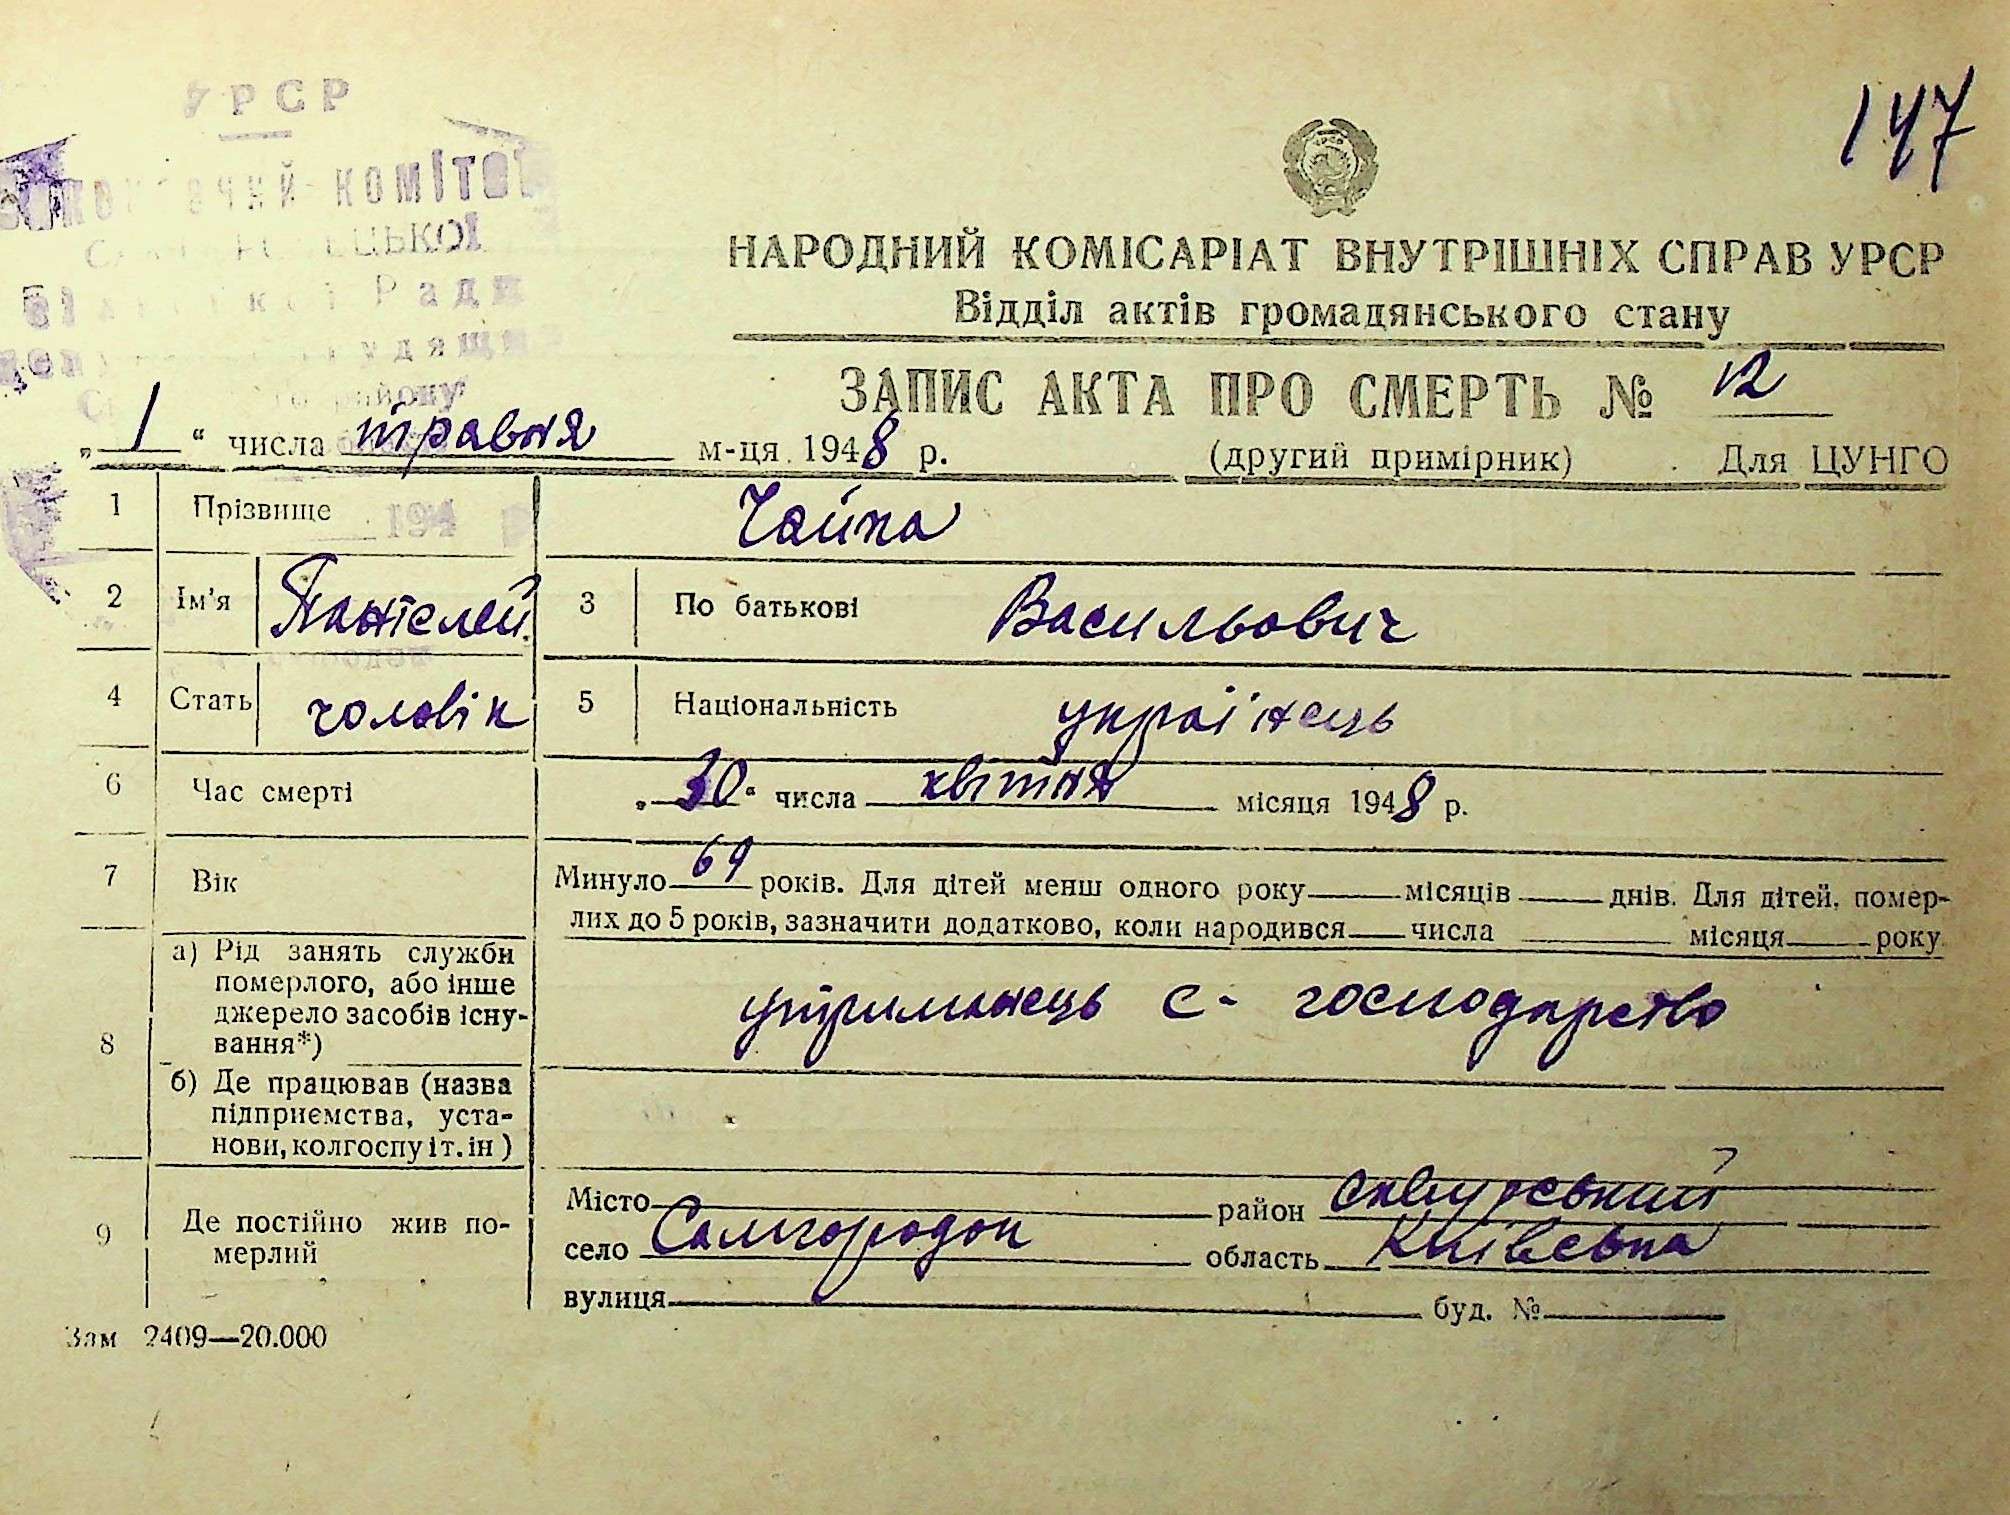 УРСР
147
комітет
НАРОДНИЙ КОМІСАРІАТ ВНУТРІШНІХ СПРАВ УРСР
Відділ актів громадянського стану
ЗАПИС АКТА ПРО СМЕРТЬ № 12
„1“ числа травня м-ця 1948 р. (другий примірник) Для ЦУНГО
1 Прізвище Чайка
194
2 Ім'я Пантелей 3 По батькові Васильович
4 Стать чоловік 5 Національність українець
6 Час смерті „30“ числа квітня місяця 1948 р.
7 Вік Минуло 69 років. Для дітей менш одного року місяців днів. Для дітей, помер-
лих до 5 років, зазначити додатково, коли народився числа місяця року
8 а) Рід занять служби
померлого, або інше
джерело засобів існу-
вання*) утриманець с-господарство
б) Де працював (назва
підприємства, уста-
нови, колгоспу і т. ін)
9 Де постійно жив по-
мерлий
Місто район Сквирський
село Самгородок область Київська
вулиця буд. №
Зам 2409—20.000